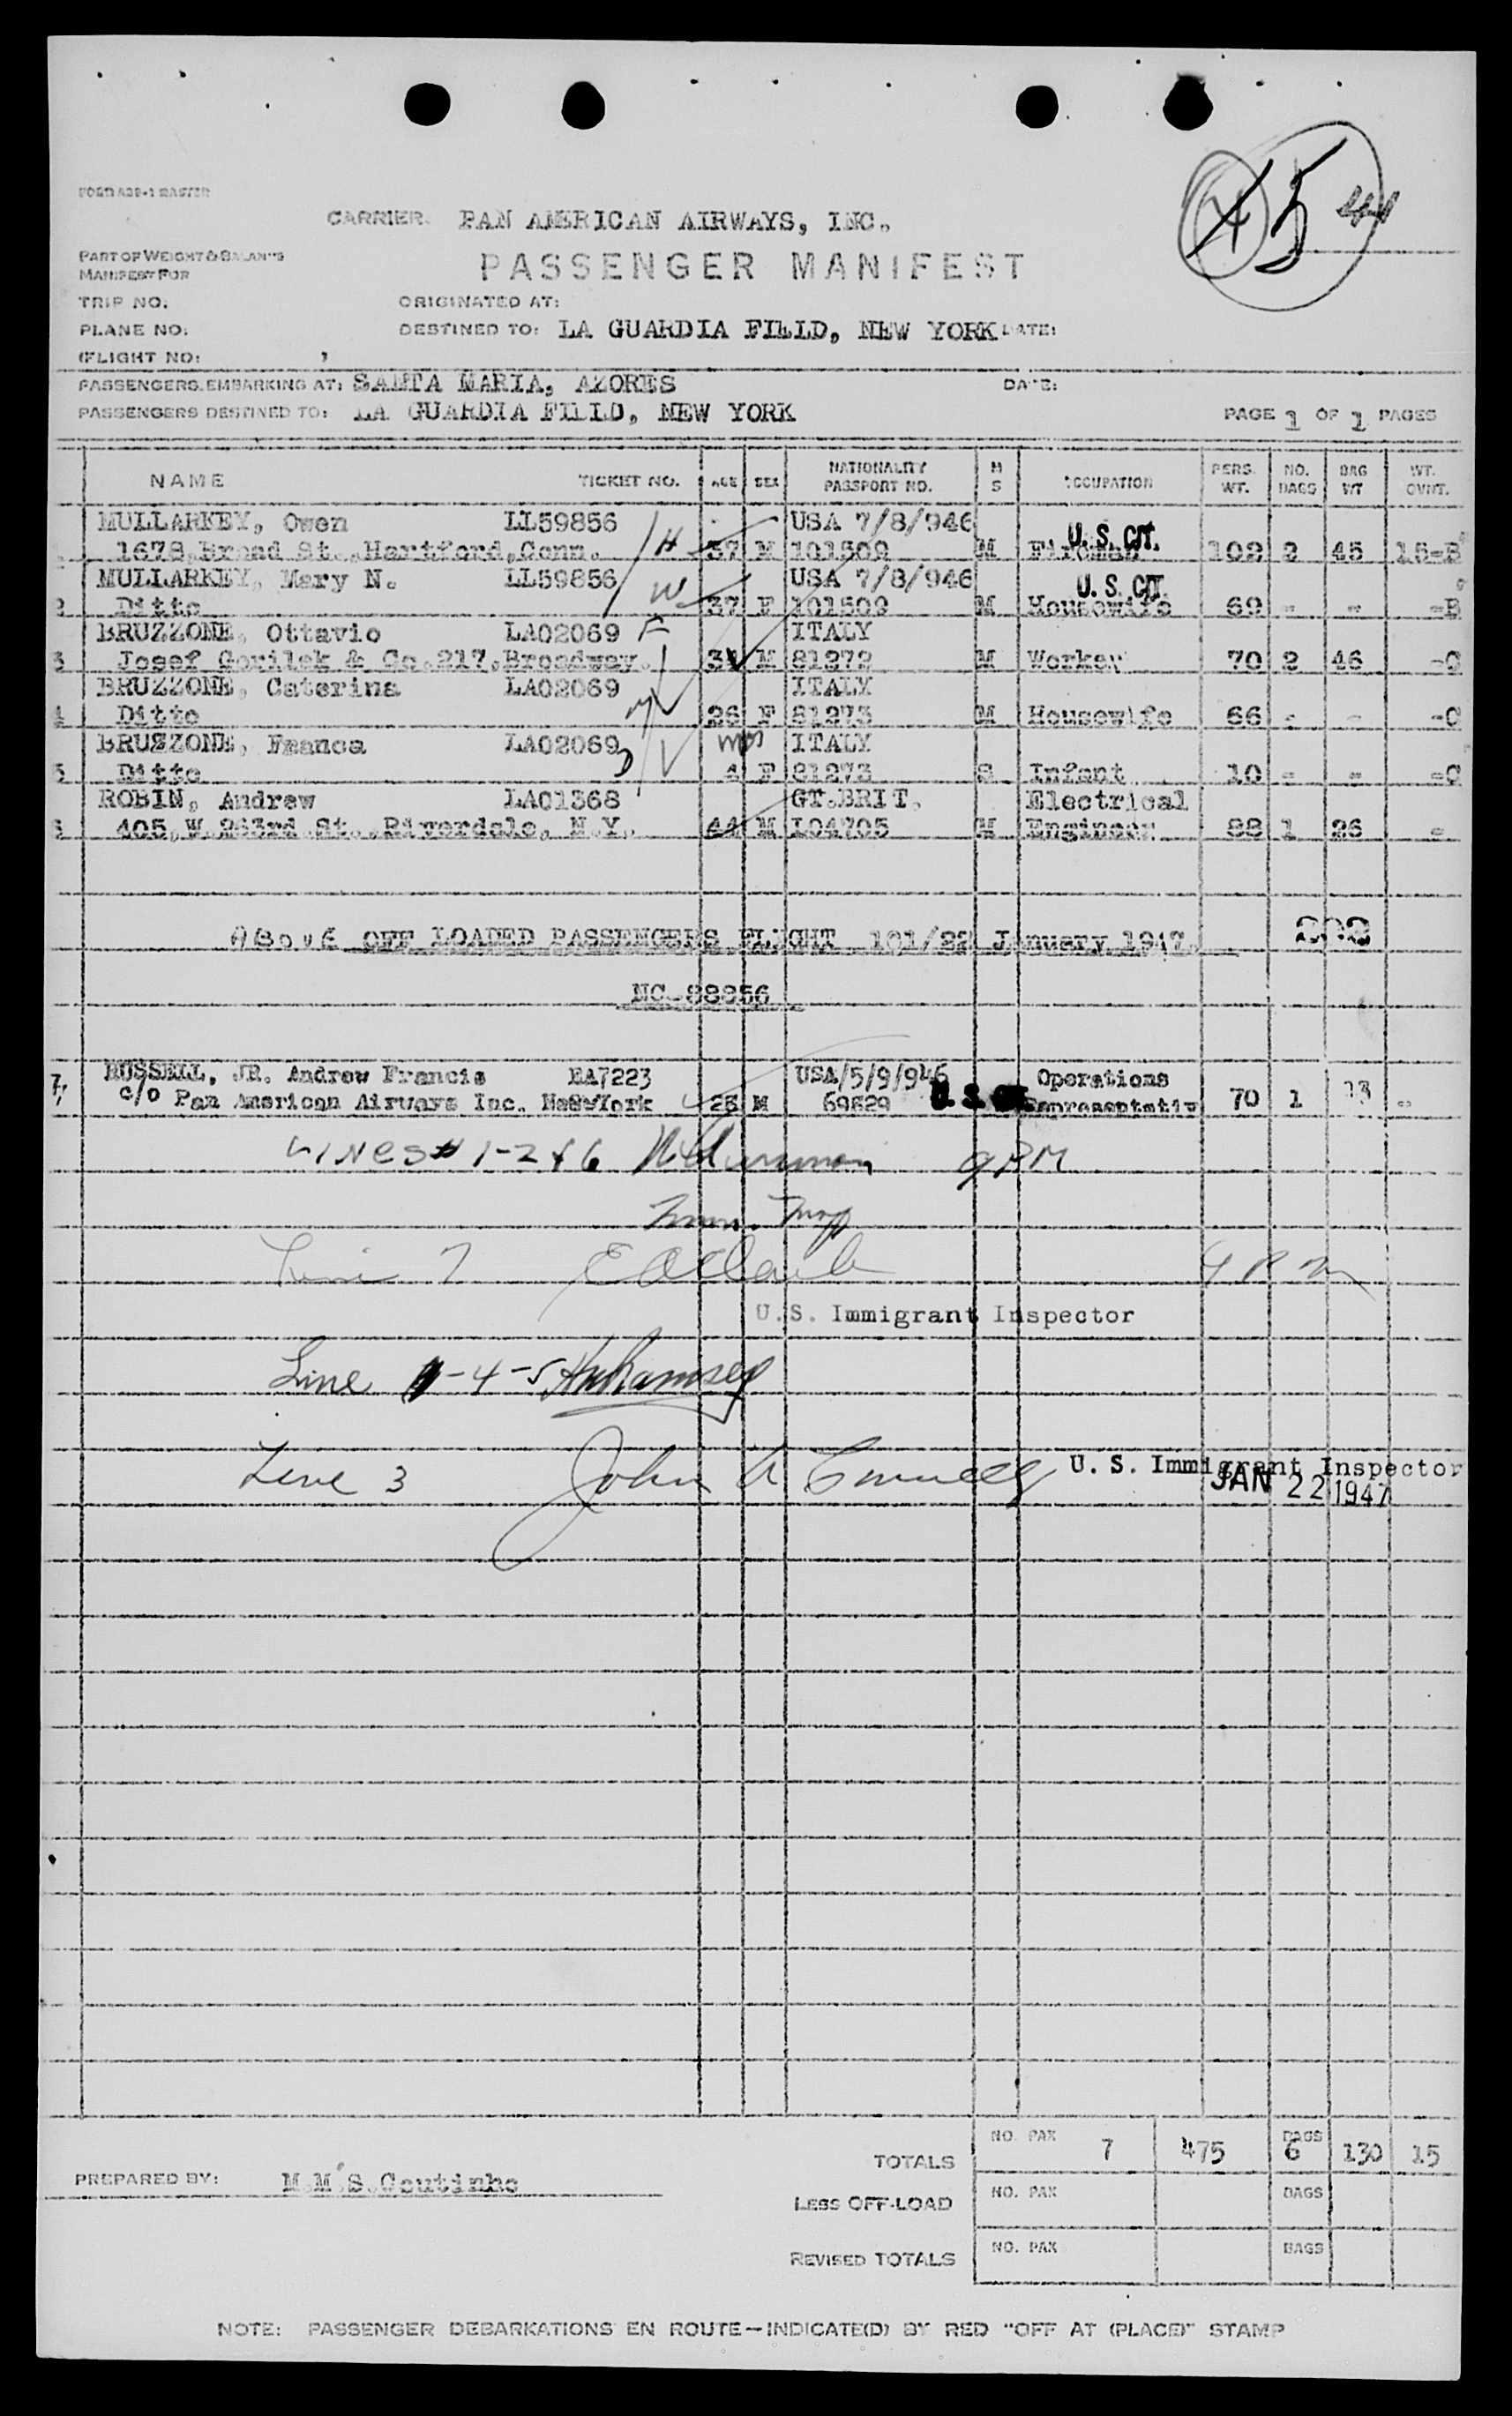 FORM A29-1 MASTER
CARRIER PAN AMERICAN AIRWAYS, INC.
45
PART OF WEIGHT & BALANCE
MANIFEST FOR
PASSENGER MANIFEST
TRIP NO.
ORIGINATED AT:
PLANE NO.
DESTINED TO: LA GUARDIA FIELD, NEW YORK DATE:
(FLIGHT NO:
PASSENGERS EMBARKING AT: SANTA MARIA, AZORES DATE:
PASSENGERS DESTINED TO: LA GUARDIA FIELD, NEW YORK PAGE 1 OF 1 PAGES
NAME TICKET NO. AGE SEX NATIONALITY PASSPORT NO. M S OCCUPATION PERS. WT. NO. BAGS BAG WT WT. OVWT.
MULLARKEY, Owen LL59856 USA 7/8/946 U.S. CIT.
1678, Broad St., Hartford, Conn. H 37 M 101509 M Fireman 102 2 45 15-B
MULLARKEY, Mary N. LL59856 W USA 7/8/946 U.S. CIT.
2 Ditto 37 F 101509 M Housewife 69 - - -B
BRUZZONE, Ottavio LA02069 F ITALY
3 Josef Gorilek & Co. 217, Broadway. M 81272 M Worker 70 2 46 -C
BRUZZONE, Caterina LA02069 ITALY
4 Ditto M 26 F 81273 M Housewife 66 - - -C
BRUZZONE, Franca LA02069 mos ITALY
5 Ditto D 4 F 81273 S Infant 10 - - -C
ROBIN, Andrew LA01368 GT.BRIT. Electrical
6 405, W. 263rd St. Riverdale, N.Y. 44 M 104705 M Engineer 88 1 26 -
ABOVE OFF LOADED PASSENGERS FLIGHT 101/22 January 1947.
NC-88856
7, RUSSELL, JR. Andrew Francis EA7223 USA/5/9/946 Operations
c/o Pan American Airways Inc. New York 25 M 69829 U.S. CIT. Representativ 70 1 13 -
LINES # 1-2 & 6 9PM
Imm. Insp
Line 7 9 P M
U.S. Immigrant Inspector
Line 4-5
Line 3 John U. S. Immigrant Inspector
JAN 22 1947
TOTALS NO. PAX 7 475 BAGS 6 130 15
PREPARED BY: M.M.S. Coutinho
LESS OFF-LOAD NO. PAX BAGS
REVISED TOTALS NO. PAX BAGS
NOTE: PASSENGER DEBARKATIONS EN ROUTE—INDICATE(D) BY RED "OFF AT (PLACE)" STAMP